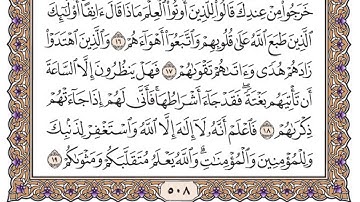 خَرَجُوا۟ مِنْ عِندِكَ قَالُوا۟ لِلَّذِينَ أُوتُوا۟ ٱلْعِلْمَ مَاذَا قَالَ ءَانِفًا أُو۟لَـٰٓئِكَ
ٱلَّذِينَ طَبَعَ ٱللَّهُ عَلَىٰ قُلُوبِهِمْ وَٱتَّبَعُوٓا۟ أَهْوَآءَهُمْ ١٦ وَٱلَّذِينَ ٱهْتَدَوْا۟
زَادَهُمْ هُدًى وَءَاتَىٰهُمْ تَقْوَىٰهُمْ ١٧ فَهَلْ يَنظُرُونَ إِلَّا ٱلسَّاعَةَ
أَن تَأْتِيَهُم بَغْتَةً فَقَدْ جَآءَ أَشْرَاطُهَا فَأَنَّىٰ لَهُمْ إِذَا جَآءَتْهُمْ
ذِكْرَىٰهُمْ ١٨ فَٱعْلَمْ أَنَّهُۥ لَآ إِلَـٰهَ إِلَّا ٱللَّهُ وَٱسْتَغْفِرْ لِذَنۢبِكَ
وَلِلْمُؤْمِنِينَ وَٱلْمُؤْمِنَـٰتِ وَٱللَّهُ يَعْلَمُ مُتَقَلَّبَكُمْ وَمَثْوَىٰكُمْ ١٩
٥٠٨